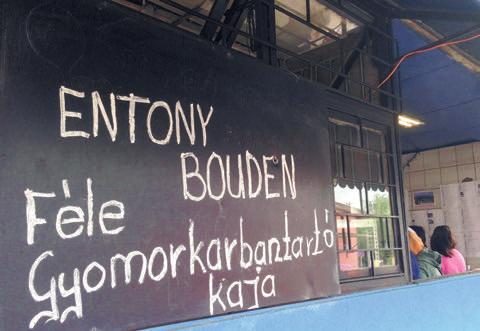 ENTONY
BOUDEN
Féle
Gyomorkarbantartó
kaja